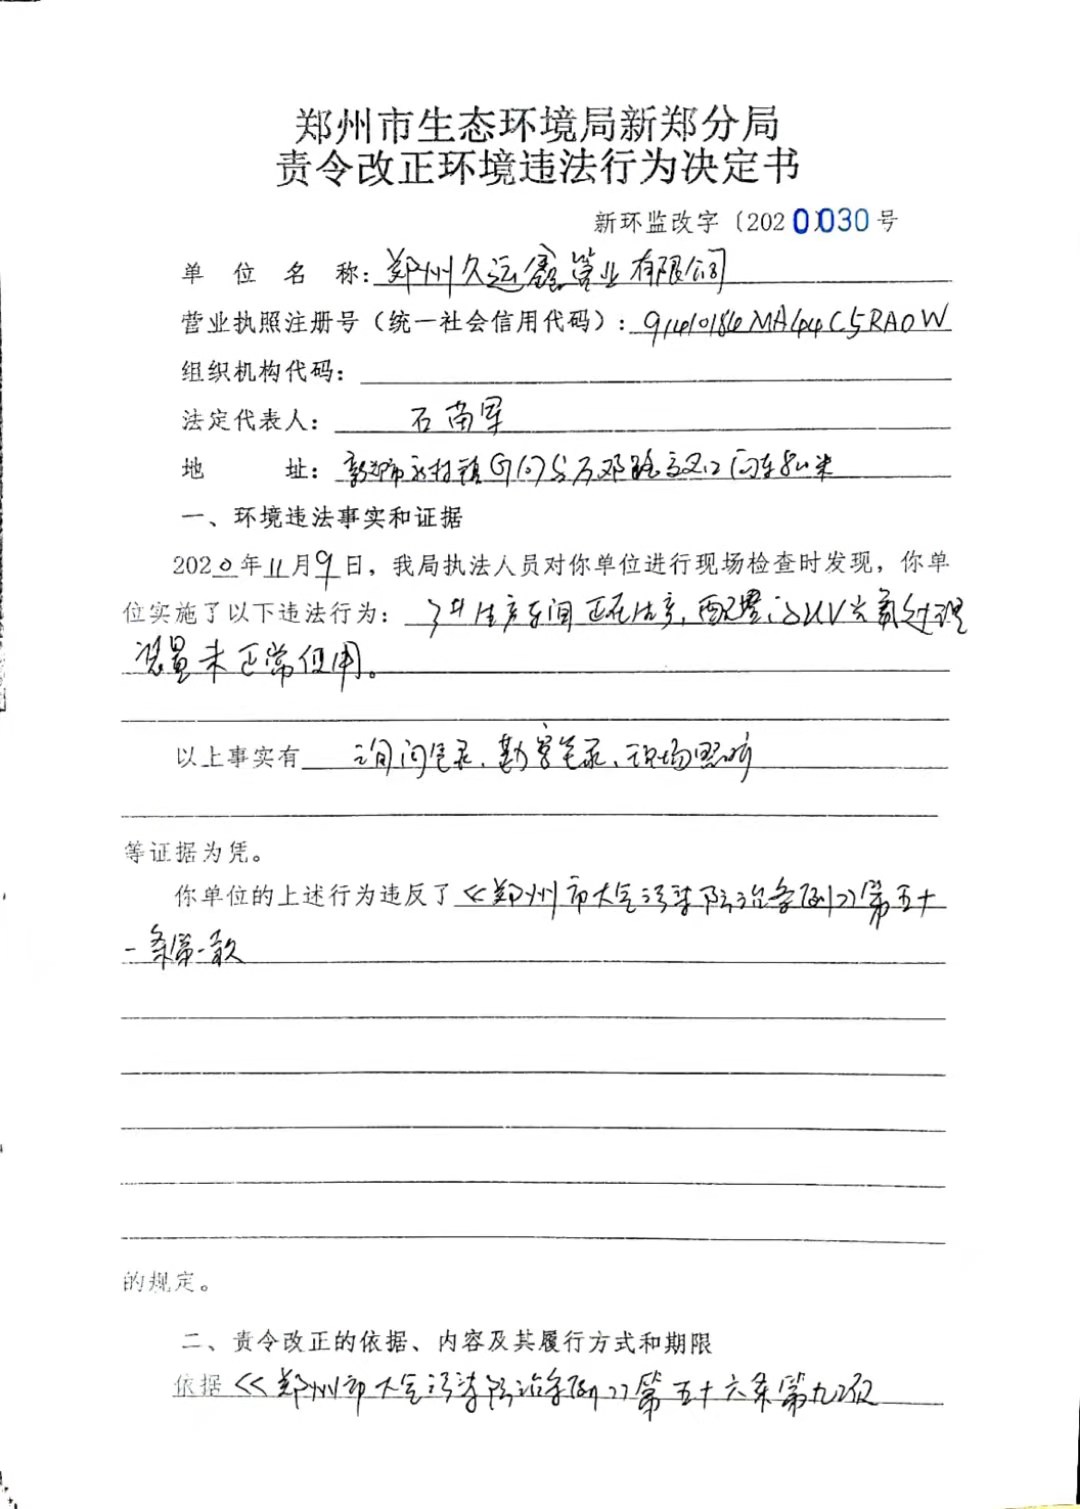 郑州市生态环境局新郑分局
责令改正环境违法行为决定书
新环监改字〔2020〕030号
单位名称：郑州久远鑫管业有限公司
营业执照注册号（统一社会信用代码）：91410184MA44C5RA0W
组织机构代码：
法定代表人：石南军
地址：新郑市 村镇G107与万邓路交叉口向东80米
一、环境违法事实和证据
2020年11月9日，我局执法人员对你单位进行现场检查时发现，你单
位实施了以下违法行为： 生产车间正在生产，配置的UV光氧处理
装置未正常使用。
以上事实有 询问笔录、勘察笔录、现场照片
等证据为凭。
你单位的上述行为违反了《郑州市大气污染防治条例》第五十
一条第一款
的规定。
二、责令改正的依据、内容及其履行方式和期限
依据《郑州市大气污染防治条例》第五十六条第九项